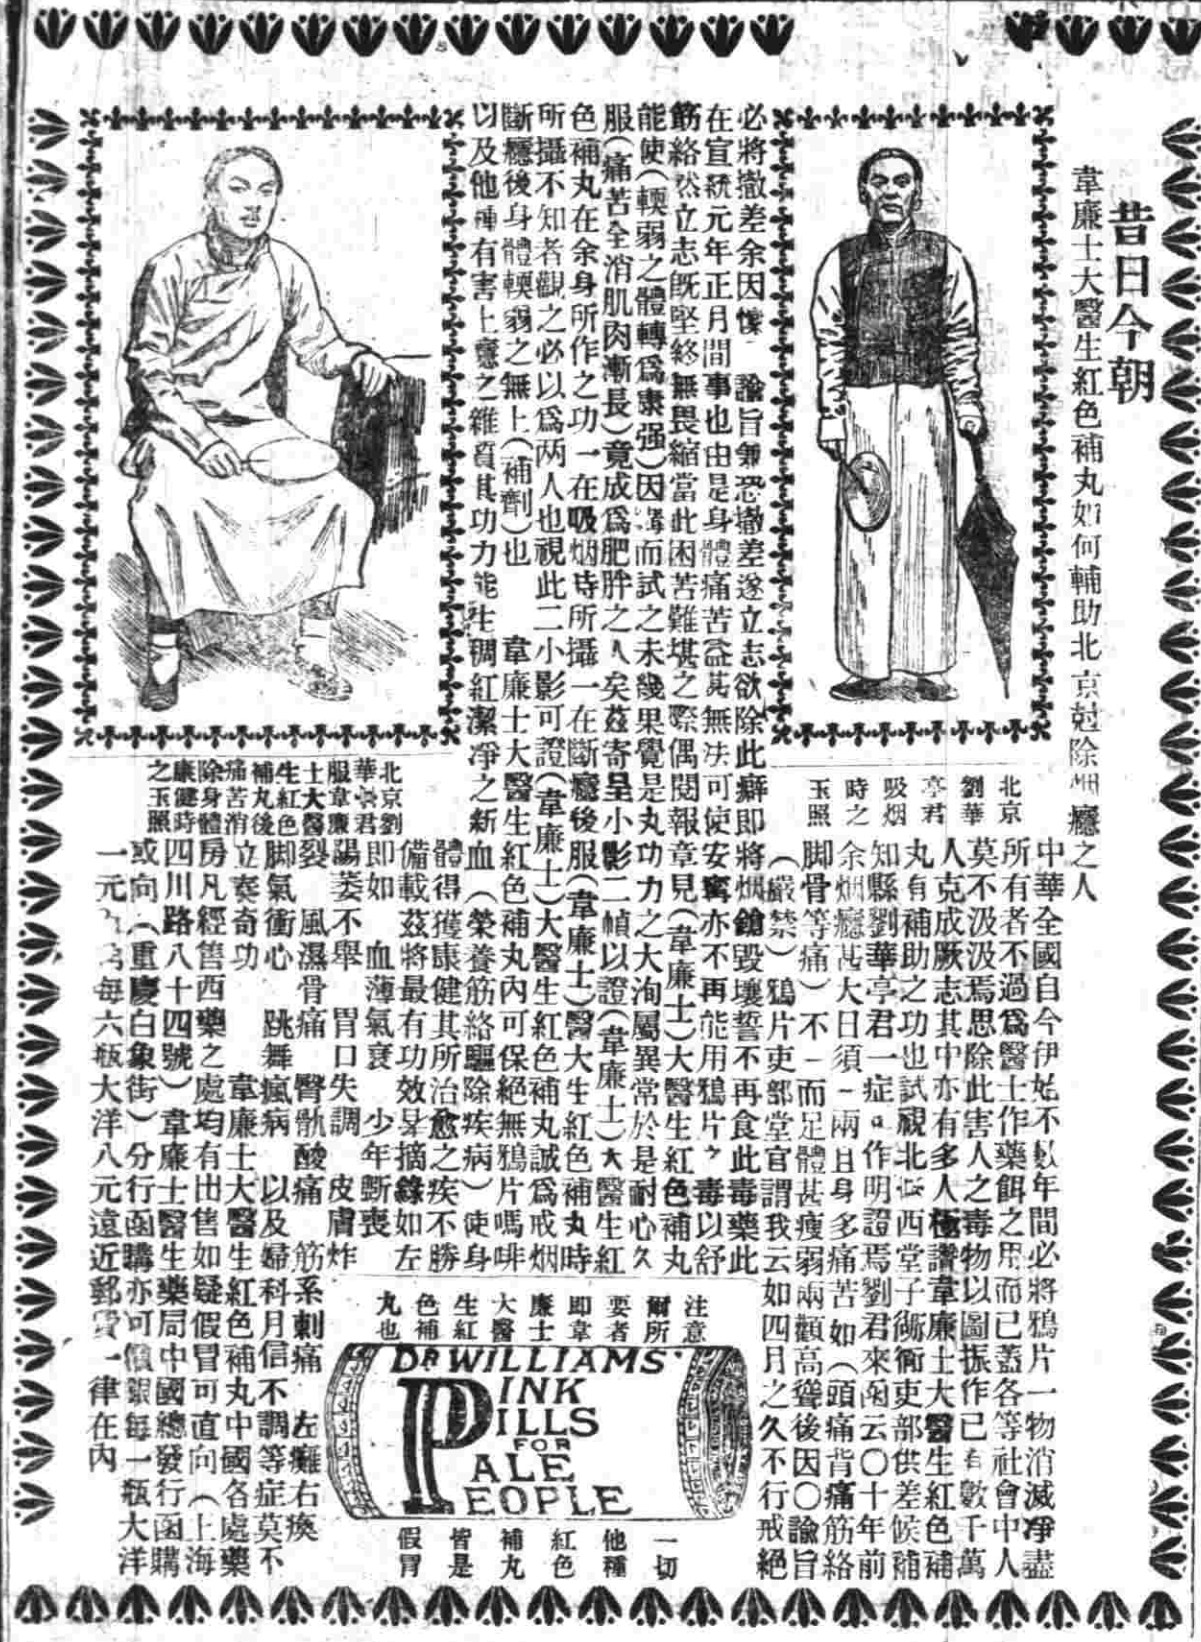 昔日今朝
韋廉士大醫生紅色補丸如何輔助北京尅除烟癮之人
北京
劉華
亭君
吸烟
時之
玉照
中華全國自今伊始不數年間必將鴉片一物消滅凈盡
所有者不過爲醫士作藥餌之用而已蓋各等社會中人
莫不汲汲焉思除此害人之毒物以圖振作已有數千萬
人克成厥志其中亦有多人極讚韋廉士大醫生紅色補
丸有補助之功也試視北西堂子衚衕吏部供差候補
知縣劉華亭君一症作明證焉劉君來函云〇十年前
余烟癮甚大日須一兩且身多痛苦如(頭痛背痛筋絡
脚骨等痛)不一而足體甚瘦弱兩顴高聳後因〇諭旨
(嚴禁)鴉片吏部堂官謂我云如四月之久不行戒絕
必將撤差余因懍 諭旨兼恐撤差遂立志欲除此癖即將烟鎗毀壞誓不再食此毒藥此
在宣統元年正月間事也由是身體痛苦益甚無法可使安寗亦不再能用鴉片之毒以舒
筋絡然立志既堅終無畏縮當此困苦難堪之際偶閱報章見(韋廉士)大醫生紅色補丸
能使(輭弱之體轉爲康强)因購而試之未幾果覺是丸功力之大洵屬異常於是耐心久
服(痛苦全消肌肉漸長)竟成爲肥胖之人矣茲寄呈小影二幀以證(韋廉士)大醫生紅
色補丸在余身所作之功一在吸烟時所攝一在斷癮後服(韋廉士)醫大生紅色補丸時
所攝不知者觀之必以爲两人也視此二小影可證(韋廉士)大醫生紅色補丸誠爲戒烟
斷癮後身體輭弱之無上(補劑)也 韋廉士大醫生紅色補丸內可保絕無鴉片嗎啡
以及他種有害上癮之雜質其功力能生稠紅潔凈之新血(榮養筋絡驅除疾病)使身
體得獲康健其所治愈之疾不勝
備載茲將最有功效畧摘錄如左
即如 血薄氣衰 少年斲喪
陽萎不舉 胃口失調 皮膚炸
裂 風濕骨痛 醫骯酸痛 筋系刺痛 左癱右瘓
脚氣衝心 跳舞瘋病 以及婦科月信不調等症莫不
立奏奇功 韋廉士大醫生紅色補丸中國各處藥
房凡經售西藥之處均有出售如疑假冒可直向(上海
四川路八十四號)韋廉士醫生藥局中國總發行函購
或向(重慶白象街)分行函購亦可價銀每一瓶大洋
一元每六瓶大洋八元遠近郵費一律在內
北京劉
華亭君
服韋廉
士大醫
生紅色
補丸後
痛苦消
除身體
康健時
之玉照
注意
爾所
要者
即韋
廉士
大醫
生紅
色補
丸也
DR WILLIAMS'
PINK
PILLS
FOR
PALE
PEOPLE
一切
他種
紅色
補丸
皆是
假冒